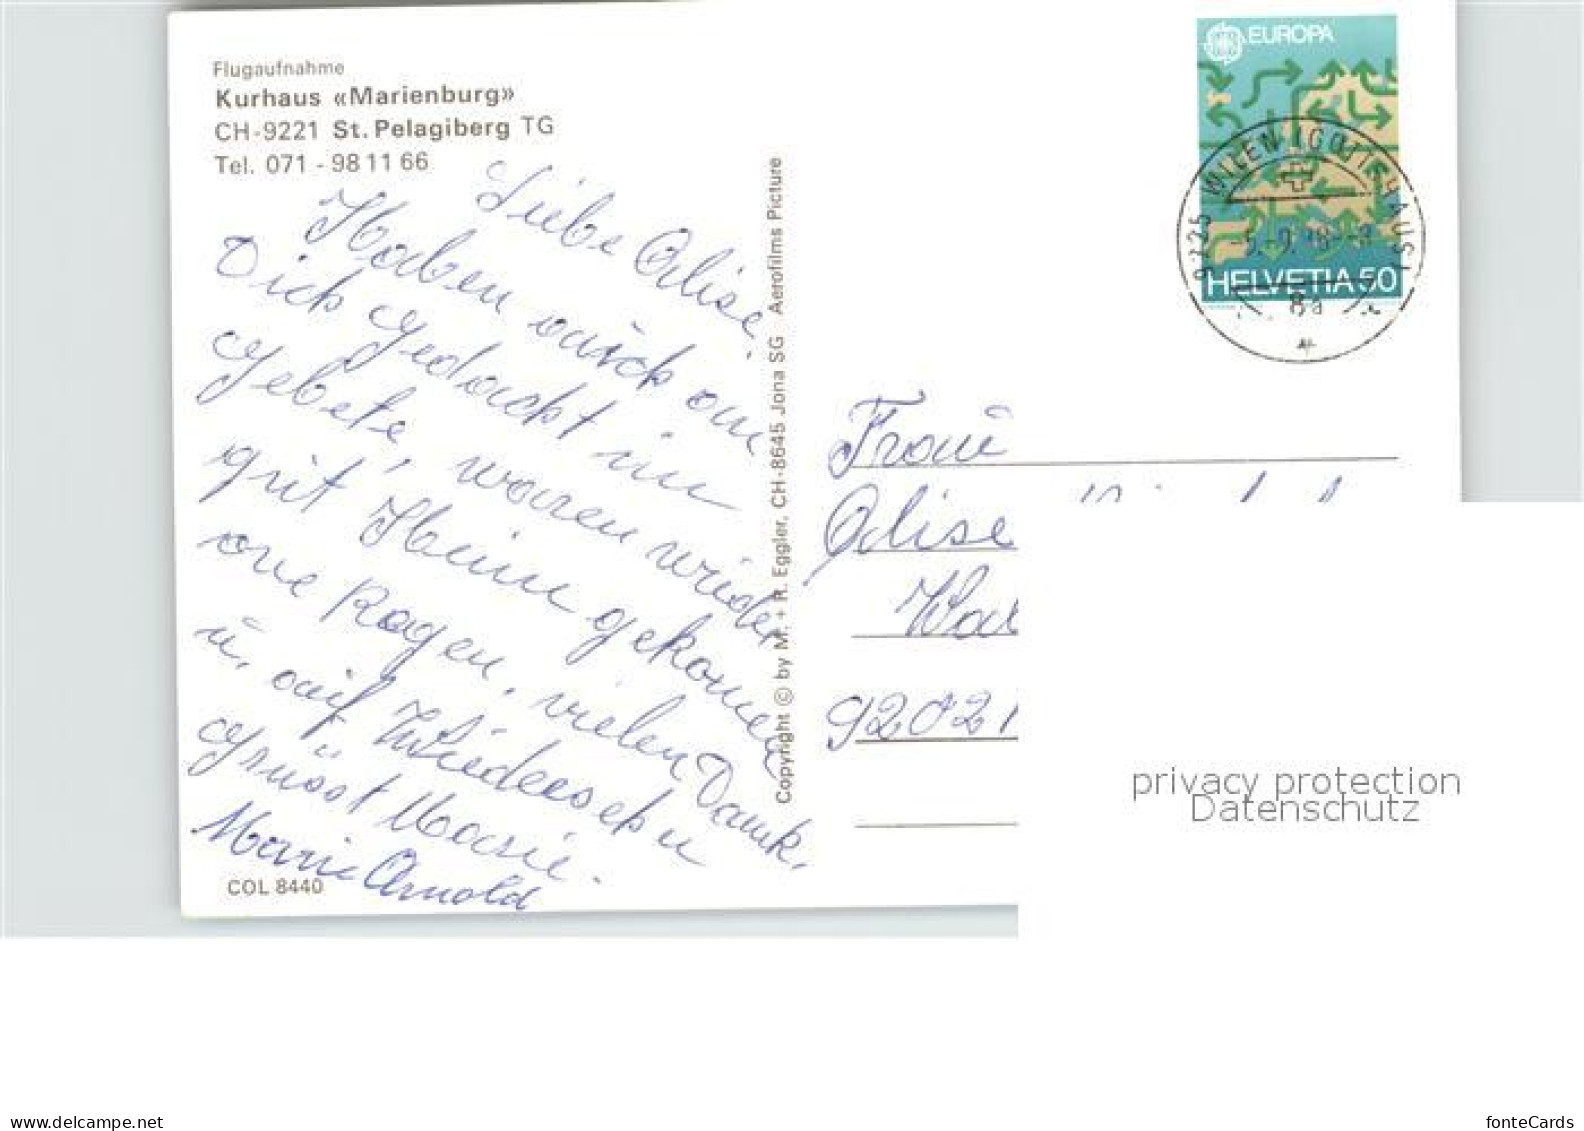 Flugaufnahme
Kurhaus «Marienburg»
CH-9221 St. Pelagiberg TG
Tel. 071 - 98 11 66
Liebe Alise,
Haben auch an
Dich gedacht im
Gebete, waren wieder
gut Heim gekomen
one Ragen, vielen Dank,
u, auf Wiedersehn
grüsst Marie.
Marie Arnold
COL 8440
Copyright © by M. + R. Eggler, CH-8645 Jona SG Aerofilms Picture
EUROPA
HELVETIA 50
9225 WILEN (GOTTSHAUS)
Frau
Alise
9202
privacy protection
Datenschutz
www.delcampe.net
fonteCards